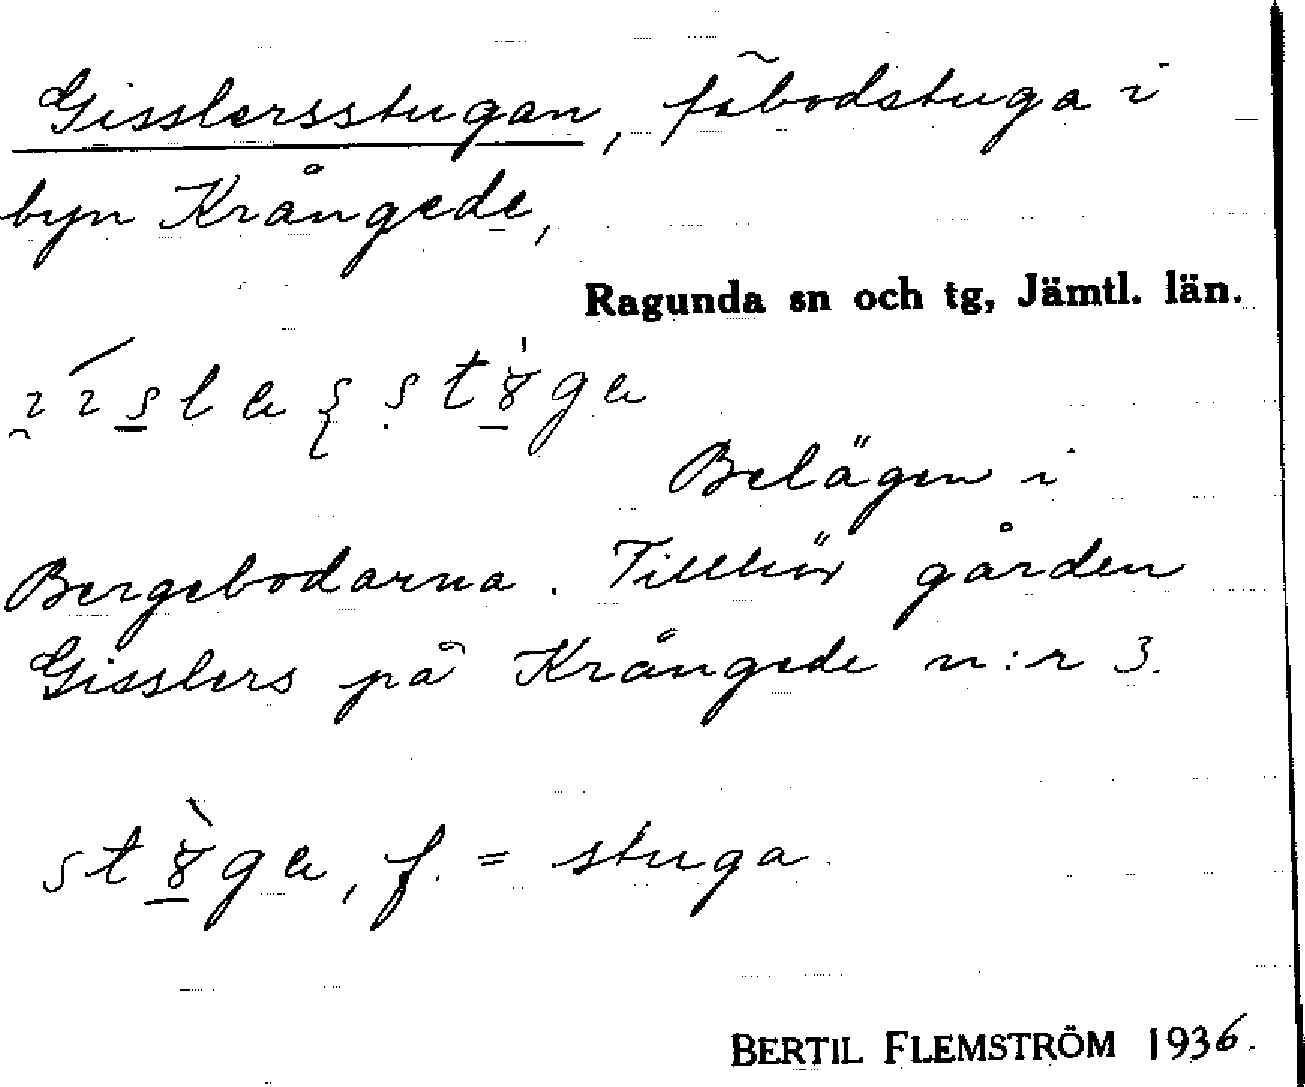 Gisslersstugan, fäbodstuga i
byn Krångede,
Ragunda sn och tg, Jämtl. län.
Belägen i
Bergebodarna. Tillhör gården
Gisslers på Krångede n:r 3.
f. = stuga
BERTIL FLEMSTRÖM 1936.